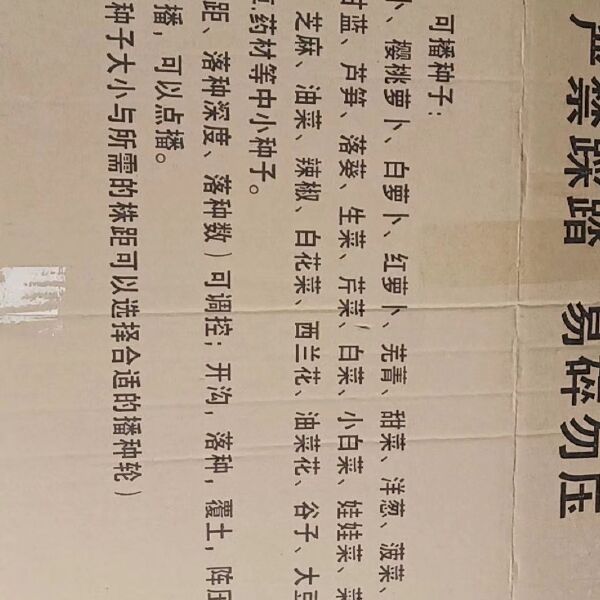 严禁踩踏 易碎勿压
可播种子：
卜、樱桃萝卜、白萝卜、红萝卜、芜菁、甜菜、洋葱、菠菜、
甘蓝、芦笋、落葵、生菜、芹菜、白菜、小白菜、娃娃菜、菜
芝麻、油菜、辣椒、白花菜、西兰花、油菜花、谷子、大豆
药材等中小种子。
距、落种深度、落种数）可调控；开沟，落种，覆土，阵压
播，可以点播。
种子大小与所需的株距可以选择合适的播种轮）